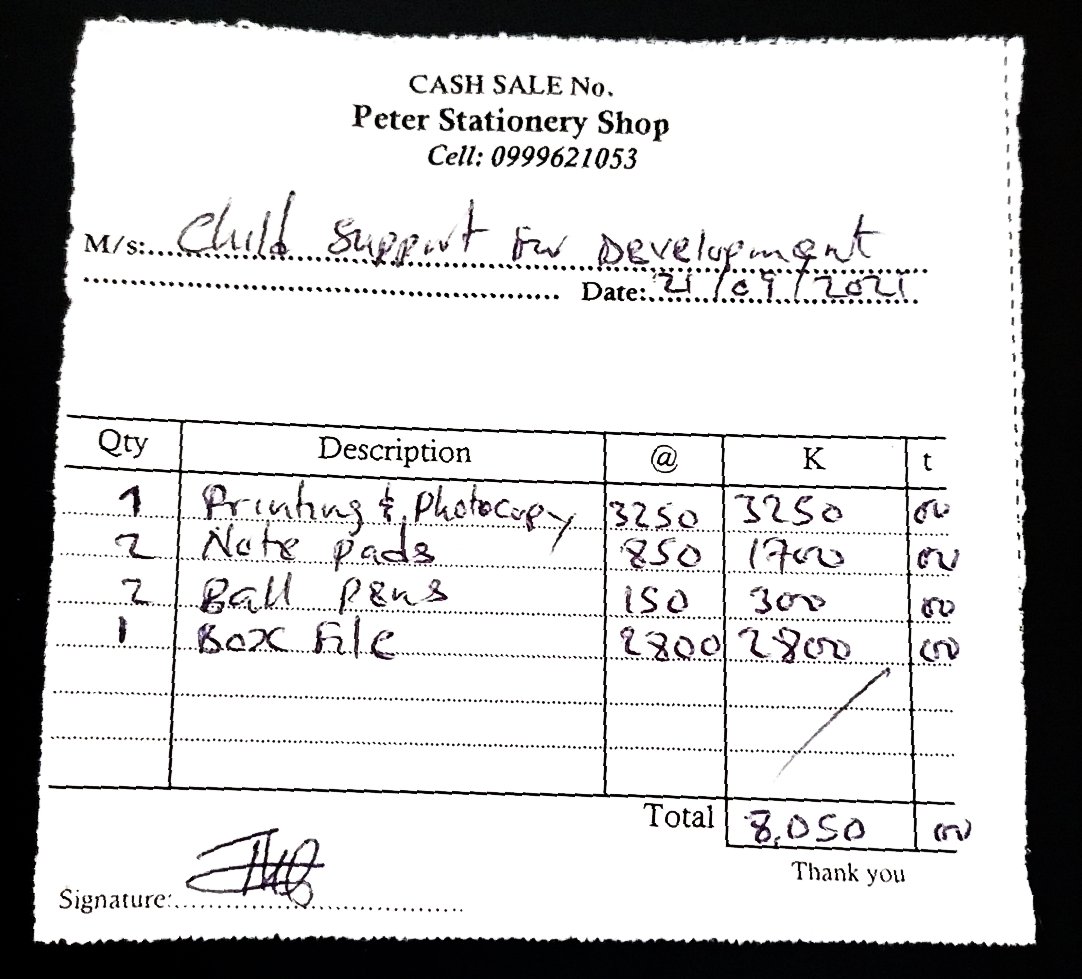 CASH SALE No.
Peter Stationery Shop
Cell: 0999621053
M/s: Child Support For Development
Date: 21/09/2021
Qty Description @ K t
1 Printing & Photocopy 3250 3250 00
2 Note pads 850 1700 00
2 Ball pens 150 300 00
1 Box File 2800 2800 00
Total 8,050 00
Thank you
Signature: